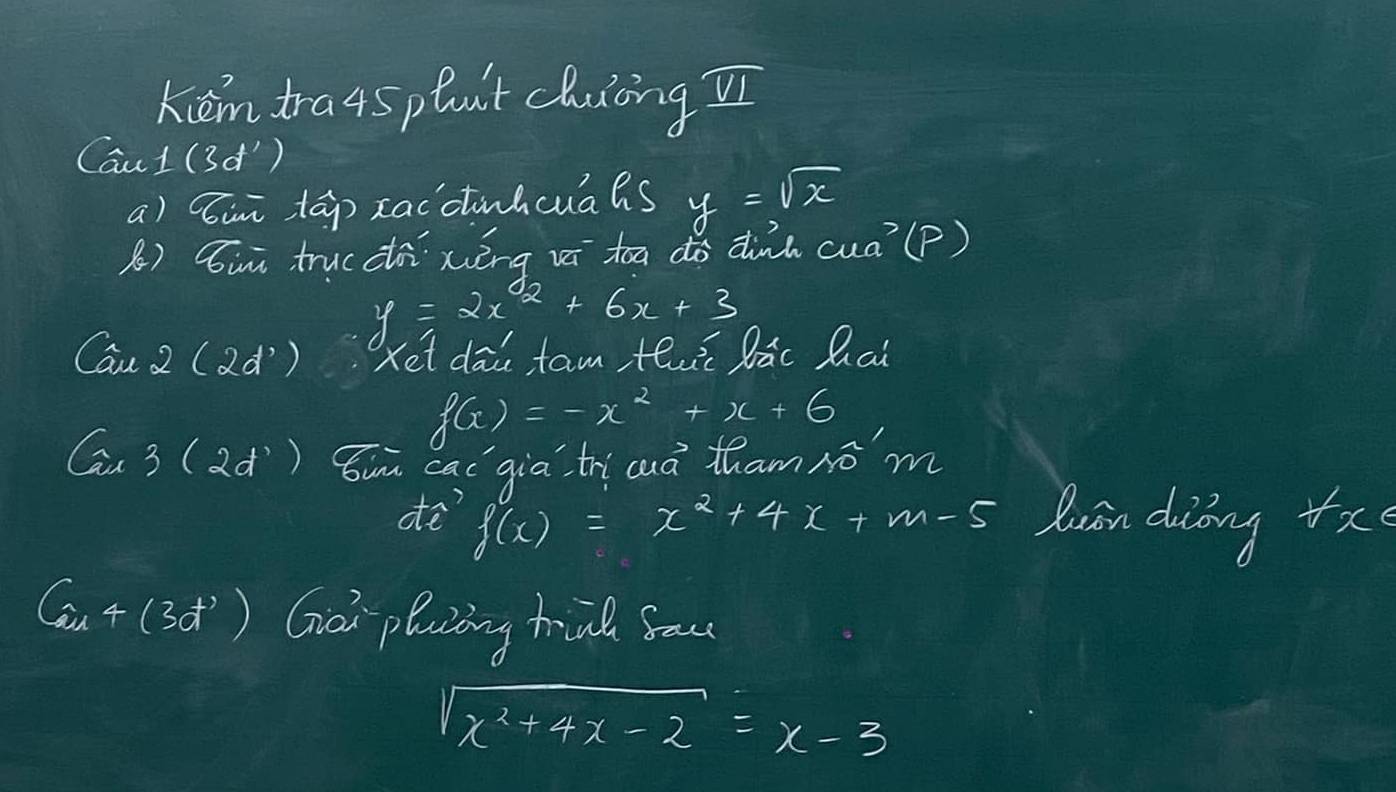 Kiểm tra 45 phút chương VI
Câu 1 (3đ')
a) Tìm tập xác định của hS y = √x
b) Tìm trục đối xứng và toạ độ đỉnh của (P)
y = 2x² + 6x + 3
Câu 2 (2đ') Xét dấu tam thức bậc hai
f(x) = -x² + x + 6
Câu 3 (2đ') Tìm các giá trị của tham số m
để f(x) = x² + 4x + m - 5 luôn dương ∀x ∈
Câu 4 (3đ') Giải phương trình sau
√(x² + 4x - 2) = x - 3